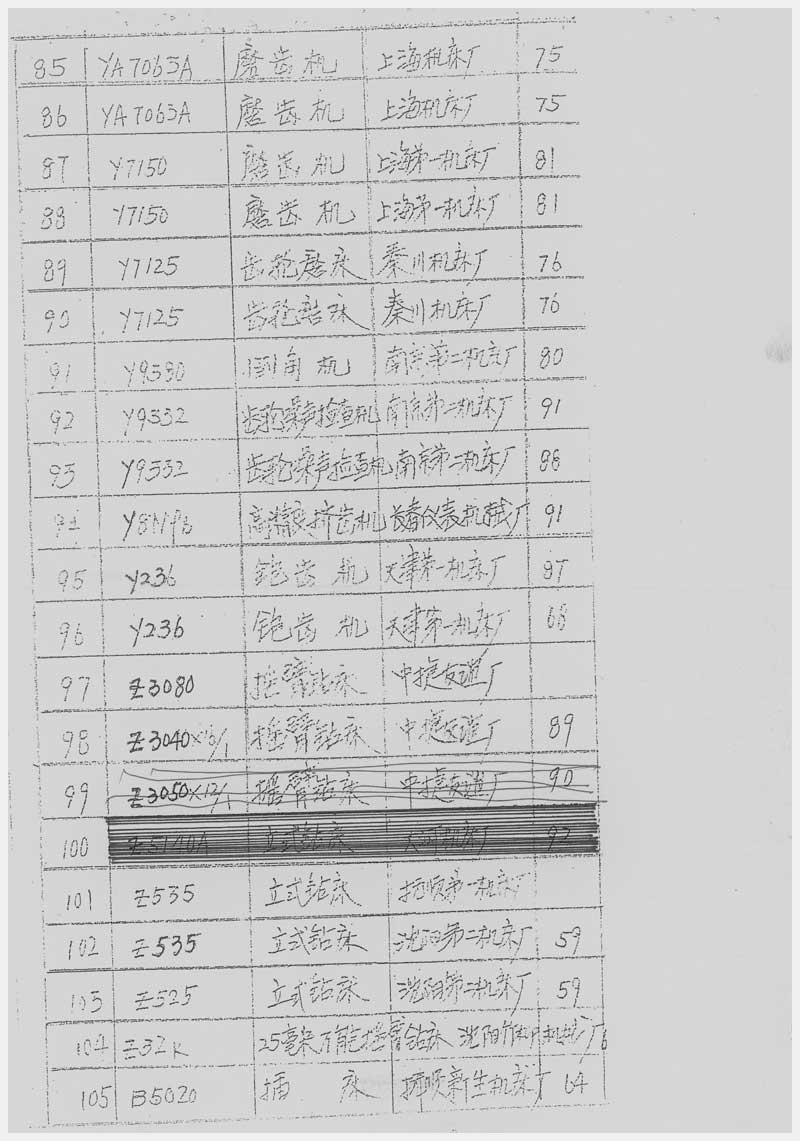 85 YA7063A 磨齿机 上海机床厂 75
86 YA7063A 磨齿机 上海机床厂 75
87 Y7150 磨齿机 上海第一机床厂 81
88 Y7150 磨齿机 上海第一机床厂 81
89 Y7125 齿轮磨床 秦川机床厂 76
90 Y7125 齿轮磨床 秦川机床厂 76
91 Y9380 倒角机 南京第二机床厂 80
92 Y9332 齿轮噪声检查机 南京第二机床厂 91
93 Y9332 齿轮噪声检查机 南京第二机床厂 86
94 挤齿机 长春仪表机械厂 91
95 Y236 刨齿机 天津第一机床厂 87
96 Y236 刨齿机 天津第一机床厂 68
97 Z3080 摇臂钻床 中捷友谊厂
98 Z3040×16/1 摇臂钻床 中捷友谊厂 89
99 Z3050×12/1 摇臂钻床 中捷友谊厂 90
100 立式钻床 92
101 Z535 立式钻床 抚顺第一机床厂
102 Z535 立式钻床 沈阳第二机床厂 59
103 Z525 立式钻床 沈阳第二机床厂 59
104 Z32K 25毫米万能摇臂钻床 沈阳
105 B5020 插床 抚顺新生机床厂 64